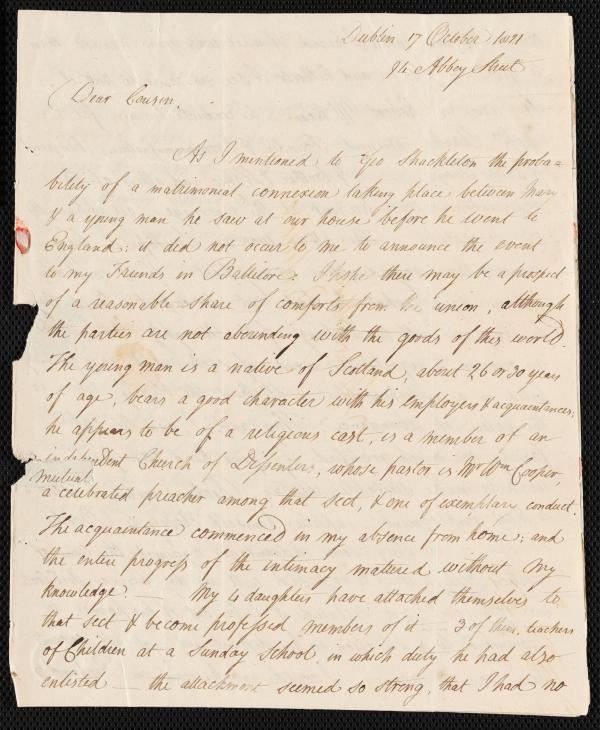 Dublin 17 October 1821
94 Abbey Street
Dear Cousin,
As I mentioned to Geo Shackleton the proba=
bility of a matrimonial connexion taking place between Mary
& a young man he saw at our house before he went to
England; it did not occur to me to announce the event
to my Friends in Ballitore: I hope there may be a prospect
of a reasonable share of comforts from the union, although
the parties are not abounding with the goods of this world.
The young man is a native of Scotland, about 26 or 30 years
of age, bears a good character with his employers & acquaintances;
he appears to be of a religious cast, is a member of an
independent Church of Dissenters, whose pastor is Mr Wm Cooper,
mutual
a celebrated preacher among that sect, & one of exemplary conduct.
The acquaintance commenced in my absence from home; and
the entire progress of the intimacy mattered without my
knowledge. — My 4 daughters have attached themselves to
that sect & become professed members of it — 3 of them, teachers
of Children at a Sunday School, in which duty he had also
enlisted — the attachment seemed so strong, that I had no